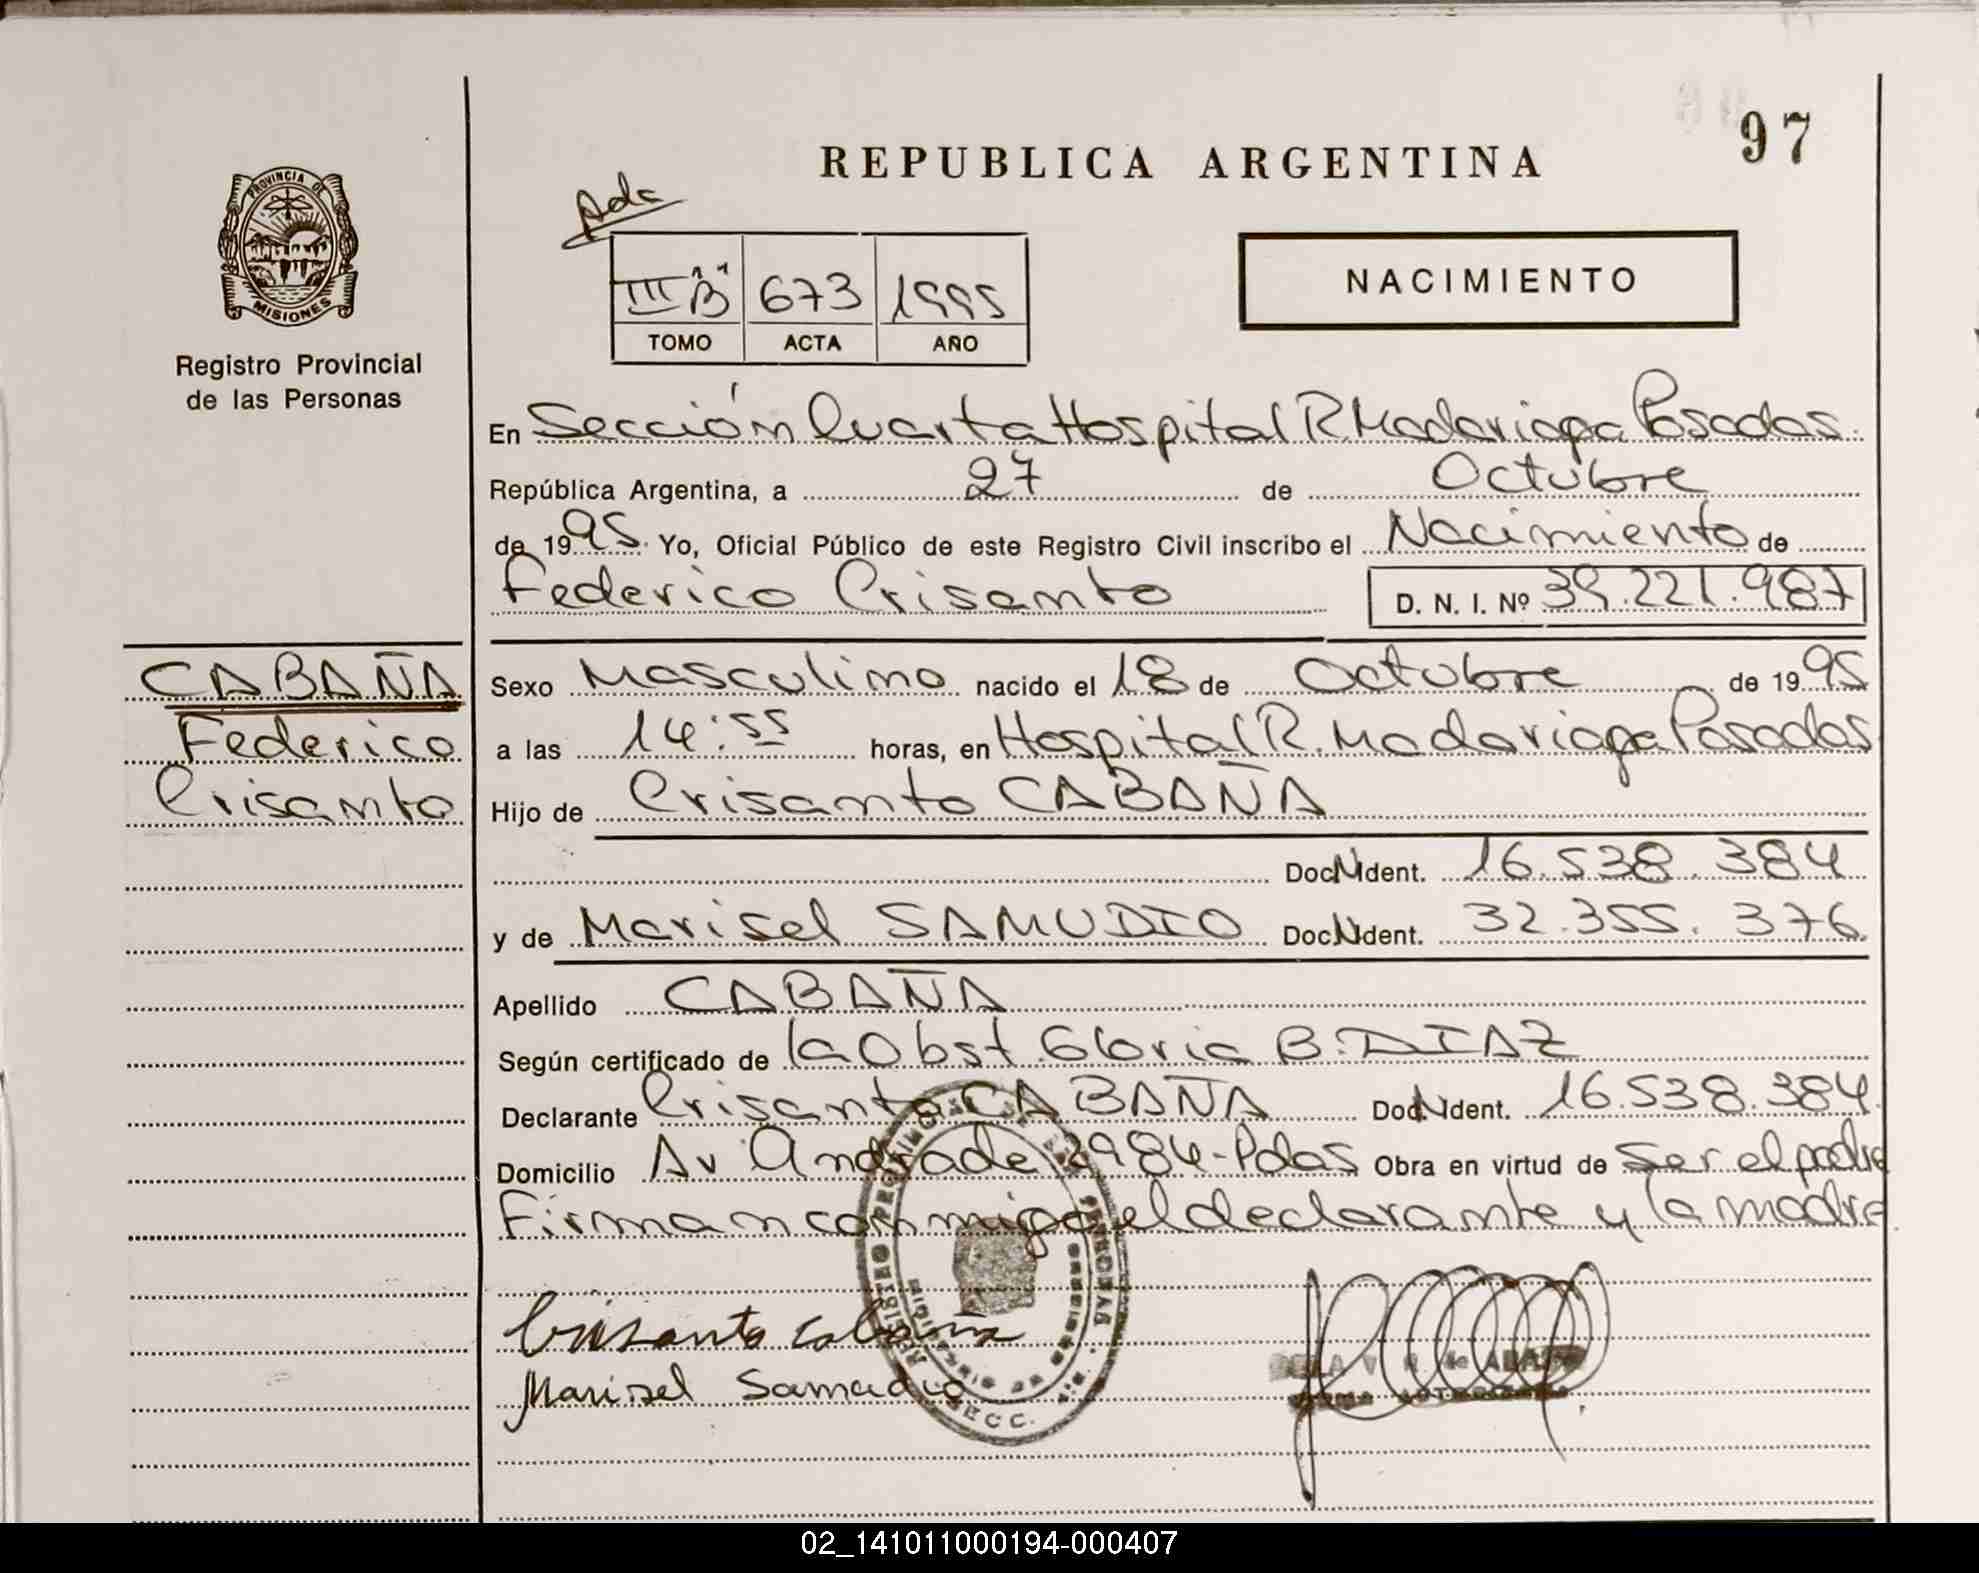 97
REPUBLICA ARGENTINA
PROVINCIA DE
MISIONES
Registro Provincial
de las Personas
III "B" 673 1995
TOMO ACTA AÑO
NACIMIENTO
En Sección Cuarta Hospital R. Madariaga Posadas.
República Argentina, a 27 de Octubre
de 1995. Yo, Oficial Público de este Registro Civil inscribo el Nacimiento de
Federico Crisanto D. N. I. Nº 39.221.987
CABAÑA
Federico
Crisanto
Sexo Masculino nacido el 18 de Octubre de 1995
a las 14:55 horas, en Hospital R. Madariaga Posadas
Hijo de Crisanto CABAÑA
Doc. N Ident. 16.538.384
y de Marisel SAMUDIO Doc. N Ident. 32.355.376
Apellido CABAÑA
Según certificado de la Obst. Gloria B. DIAZ
Declarante Crisanto CABAÑA Doc. N Ident. 16.538.384.
Domicilio Av Andrade 2984-Pdas Obra en virtud de ser el padre
Firman conmigo el declarante y la madre
Crisanto Cabaña
Marisel Samudio
02_141011000194-000407